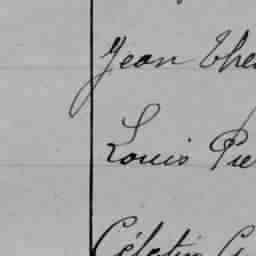 Jean Thé
Louis Pie
Célestin G